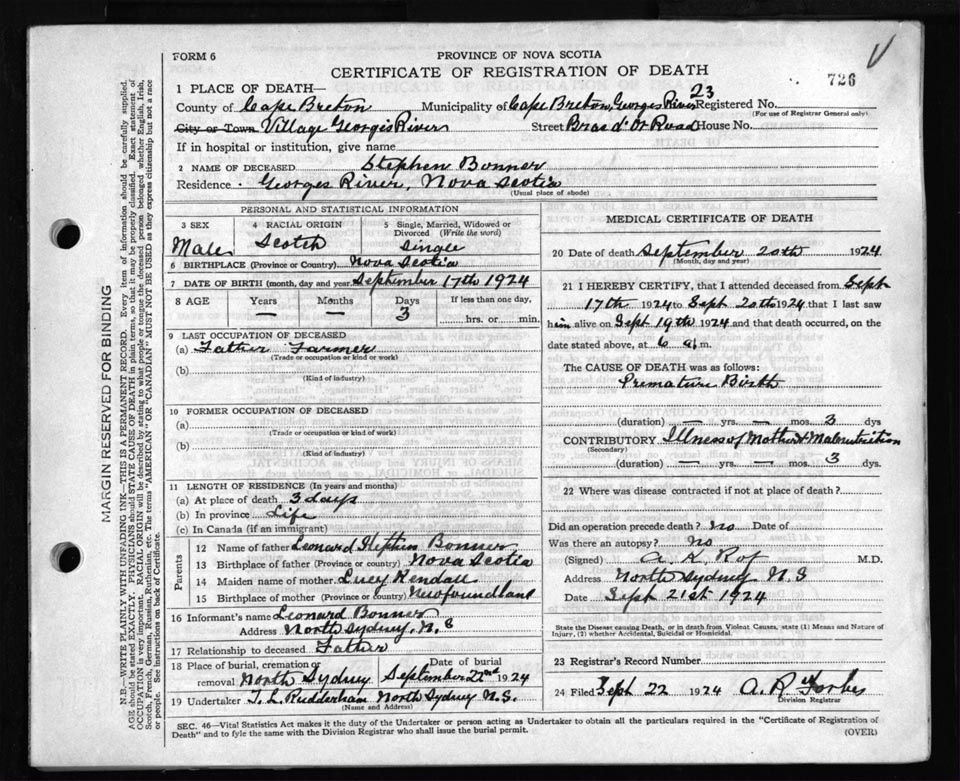 FORM 6
PROVINCE OF NOVA SCOTIA
CERTIFICATE OF REGISTRATION OF DEATH
726
1 PLACE OF DEATH—
23
County of Cape Breton Municipality of Cape Breton, Georges River Registered No.
(For use of Registrar General only)
City or Town Village Georges River Street Bras d'Or Road House No.
If in hospital or institution, give name
2 NAME OF DECEASED Stephen Bonner
Residence Georges River, Nova Scotia
(Usual place of abode)
PERSONAL AND STATISTICAL INFORMATION
3 SEX Male
4 RACIAL ORIGIN Scotch
5 Single, Married, Widowed or Divorced (Write the word) Single
6 BIRTHPLACE (Province or Country) Nova Scotia
7 DATE OF BIRTH (month, day and year) September 17th 1924
8 AGE Years Months Days If less than one day,
— — 3 hrs. or min.
9 LAST OCCUPATION OF DECEASED
(a) Father Farmer
(Trade or occupation or kind or work)
(b)
(Kind of industry)
10 FORMER OCCUPATION OF DECEASED
(a)
(Trade or occupation or kind or work)
(b)
(Kind of industry)
11 LENGTH OF RESIDENCE (In years and months)
(a) At place of death 3 days
(b) In province Life
(c) In Canada (if an immigrant)
Parents
12 Name of father Leonard Stephen Bonner
13 Birthplace of father (Province or country) Nova Scotia
14 Maiden name of mother Lucy Kendall
15 Birthplace of mother (Province or country) Newfoundland
16 Informant's name Leonard Bonner
Address North Sydney, N.S
17 Relationship to deceased Father
18 Place of burial, cremation or removal North Sydney Date of burial September 22nd 1924
19 Undertaker T. L. Rudderham North Sydney N.S.
(Name and Address)
MEDICAL CERTIFICATE OF DEATH
20 Date of death September 20th 1924
(Month, day and year)
21 I HEREBY CERTIFY, that I attended deceased from Sept
17th 1924 to Sept 20th 1924 that I last saw
him alive on Sept 19th 1924 and that death occurred, on the
date stated above, at 6 a.m.
The CAUSE OF DEATH was as follows:
Premature Birth
(duration) — yrs. — mos. 3 dys
CONTRIBUTORY Illness of Mother & Malnutrition
(Secondary)
(duration) — yrs. — mos. 3 dys.
22 Where was disease contracted if not at place of death?
Did an operation precede death? No Date of
Was there an autopsy? No
(Signed) A. K. M.D.
Address North Sydney N.S
Date Sept 21st 1924
State the Disease causing Death, or in death from Violent Causes, state (1) Means and Nature of
Injury, (2) whether Accidental, Suicidal or Homicidal.
23 Registrar's Record Number
24 Filed Sept 22 1924 A. R. Forbes
Division Registrar
SEC. 46—Vital Statistics Act makes it the duty of the Undertaker or person acting as Undertaker to obtain all the particulars required in the "Certificate of Registration of
Death" and to fyle the same with the Division Registrar who shall issue the burial permit.
(OVER)
MARGIN RESERVED FOR BINDING
N.B.—WRITE PLAINLY WITH UNFADING INK—THIS IS A PERMANENT RECORD. Every item of information should be carefully supplied.
AGE should be stated EXACTLY. PHYSICIANS should STATE CAUSE OF DEATH in plain terms, so that it may be properly classified. Exact statement of
OCCUPATION is very important. RACIAL ORIGIN will be described by stating to what people or tongue the deceased person belonged whether English, Irish,
Scotch, French, German, Russian, Ruthenian, etc. The terms "AMERICAN" OR "CANADIAN" MUST NOT BE USED as they express citizenship but not a race
or people. See instructions on back of Certificate.